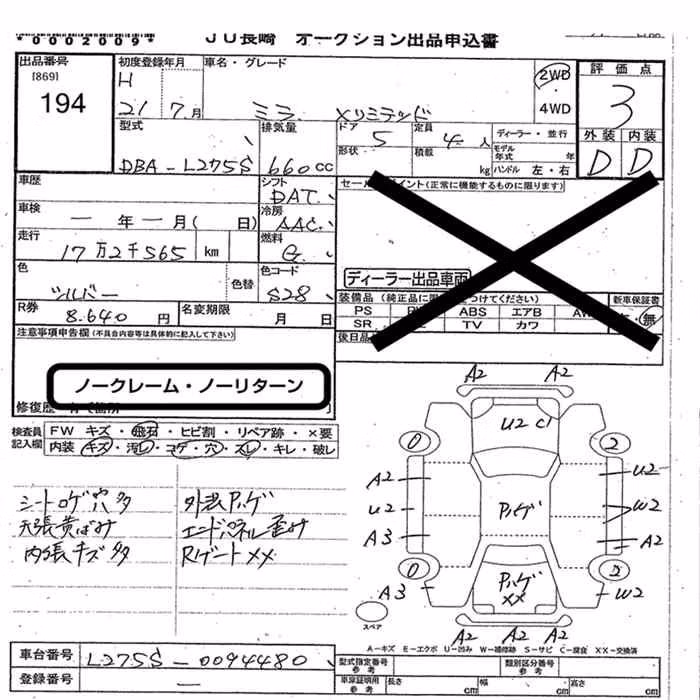 *0002009* JU長崎 オークション出品申込書
出品番号
[869]
194
初度登録年月
H
21 7月
車名・グレード
ミラ Xリミテッド
2WD
・
4WD
評価点
3
外装 内装
D D
型式
DBA-L275S
排気量
660cc
ドア 5
形状
定員 4人
積載 kg
ディーラー・並行
モデル年式 年
ハンドル 左・右
車歴
シフト
DAT
セールスポイント(正常に機能するものに限ります)
車検
一年一月( 日)
冷房
AAC
走行
17万2千565 km
燃料
G
ディーラー出品車両
色
シルバー
色替
色コード
S28
装備品(純正品に限 をつけてください)
新車保証書
PS ABS エアB AW
SR TV カワ
有・無
R券
8.640円
名変期限
月 日
後日品
注意事項申告欄(不具合内容等は具体的に記入して下さい)
ノークレーム・ノーリターン
修復歴 有(箇所 )
検査員記入欄
FW キズ・飛石・ヒビ割・リペア跡・×要
内装・キズ・汚レ・コゲ・穴・スレ・キレ・破レ
シートコゲ穴多
天張黄ばみ
内張キズ多
外装Pハゲ
エンドパネル歪み
RゲートXX
A2 A2
U2 C1
0 2
A2 U2
U2 Pハゲ W2
A3 A2
0 2
A3 Pハゲ W2
XX
スペア
A2 A2 A2
A-キズ E-エクボ U-凹み W-補修跡 S-サビ C-腐食 XX-交換済
車台番号
L275S-0094480
登録番号
—
型式指定番号
参考
類別区分番号
参考
車庫証明用
参考
長さ cm 幅 cm 高さ cm